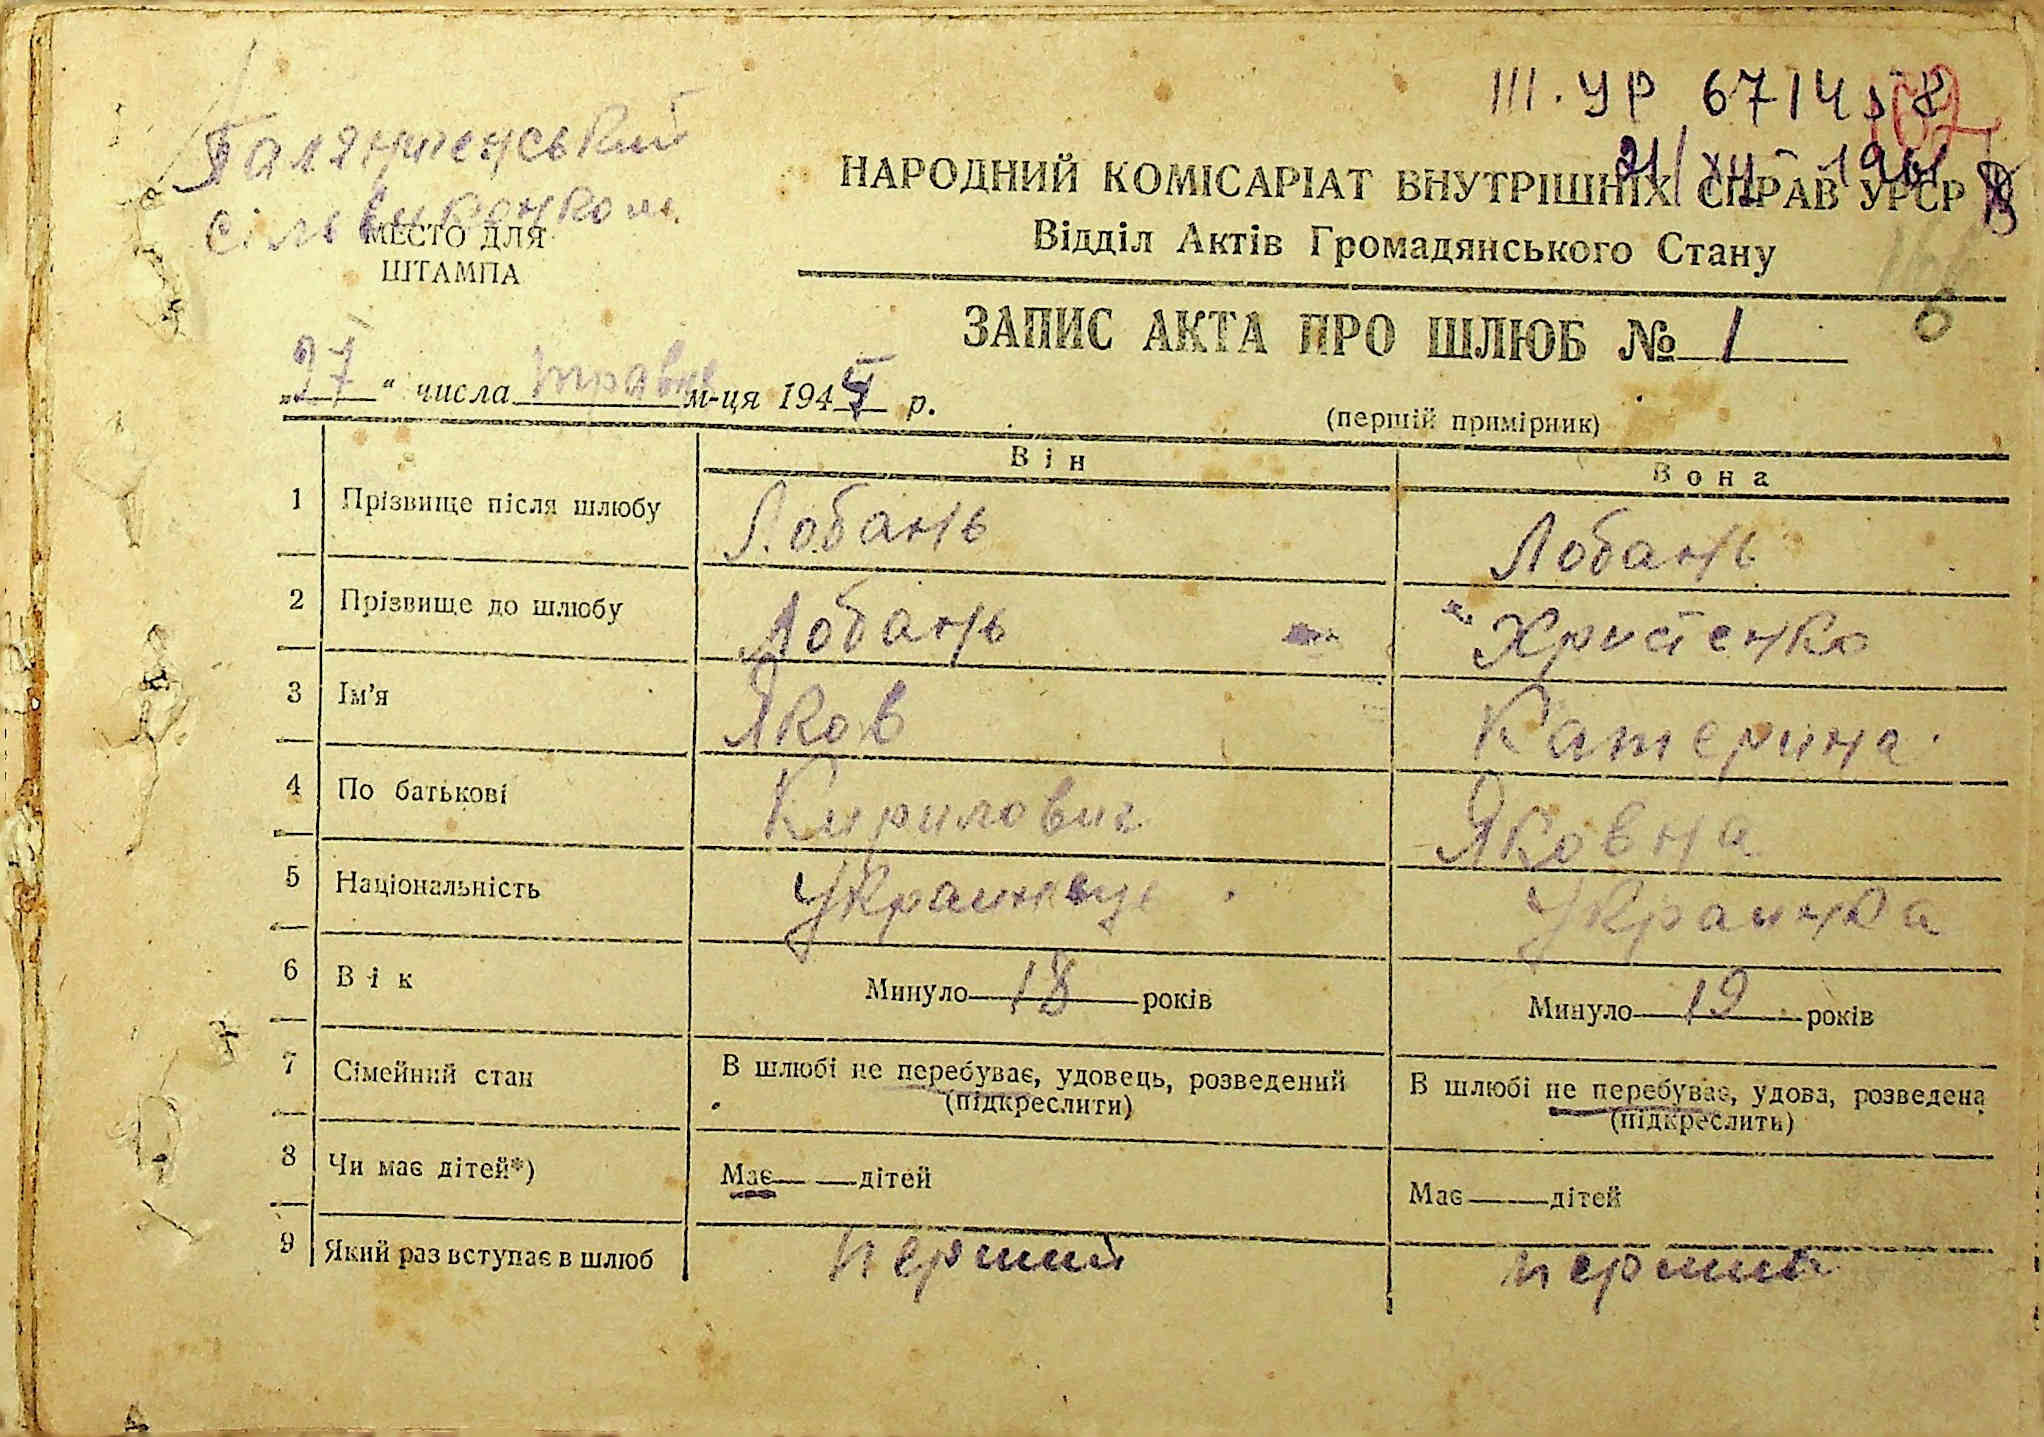 III. УР 671458
21/XII 1961
сільвиконком.
МЕСТО ДЛЯ
ШТАМПА
НАРОДНИЙ КОМІСАРІАТ ВНУТРІШНІХ СПРАВ УРСР
Відділ Актів Громадянського Стану
ЗАПИС АКТА ПРО ШЛЮБ № 1
„27“ числа травня м-ця 194 р.
(перший примірник)
Він Вона
1 Прізвище після шлюбу Лобань Лобань
2 Прізвище до шлюбу Лобань Христенко
3 Ім'я Яков Катерина
4 По батькові Кирилович Яковна
5 Національність Украинець Украинка
6 Вік Минуло 18 років Минуло 19 років
7 Сімейний стан В шлюбі не перебуває, удовець, розведений В шлюбі не перебуває, удова, розведена
(підкреслити) (підкреслити)
8 Чи має дітей*) Має — — дітей Має — дітей
9 Який раз вступає в шлюб перший перший